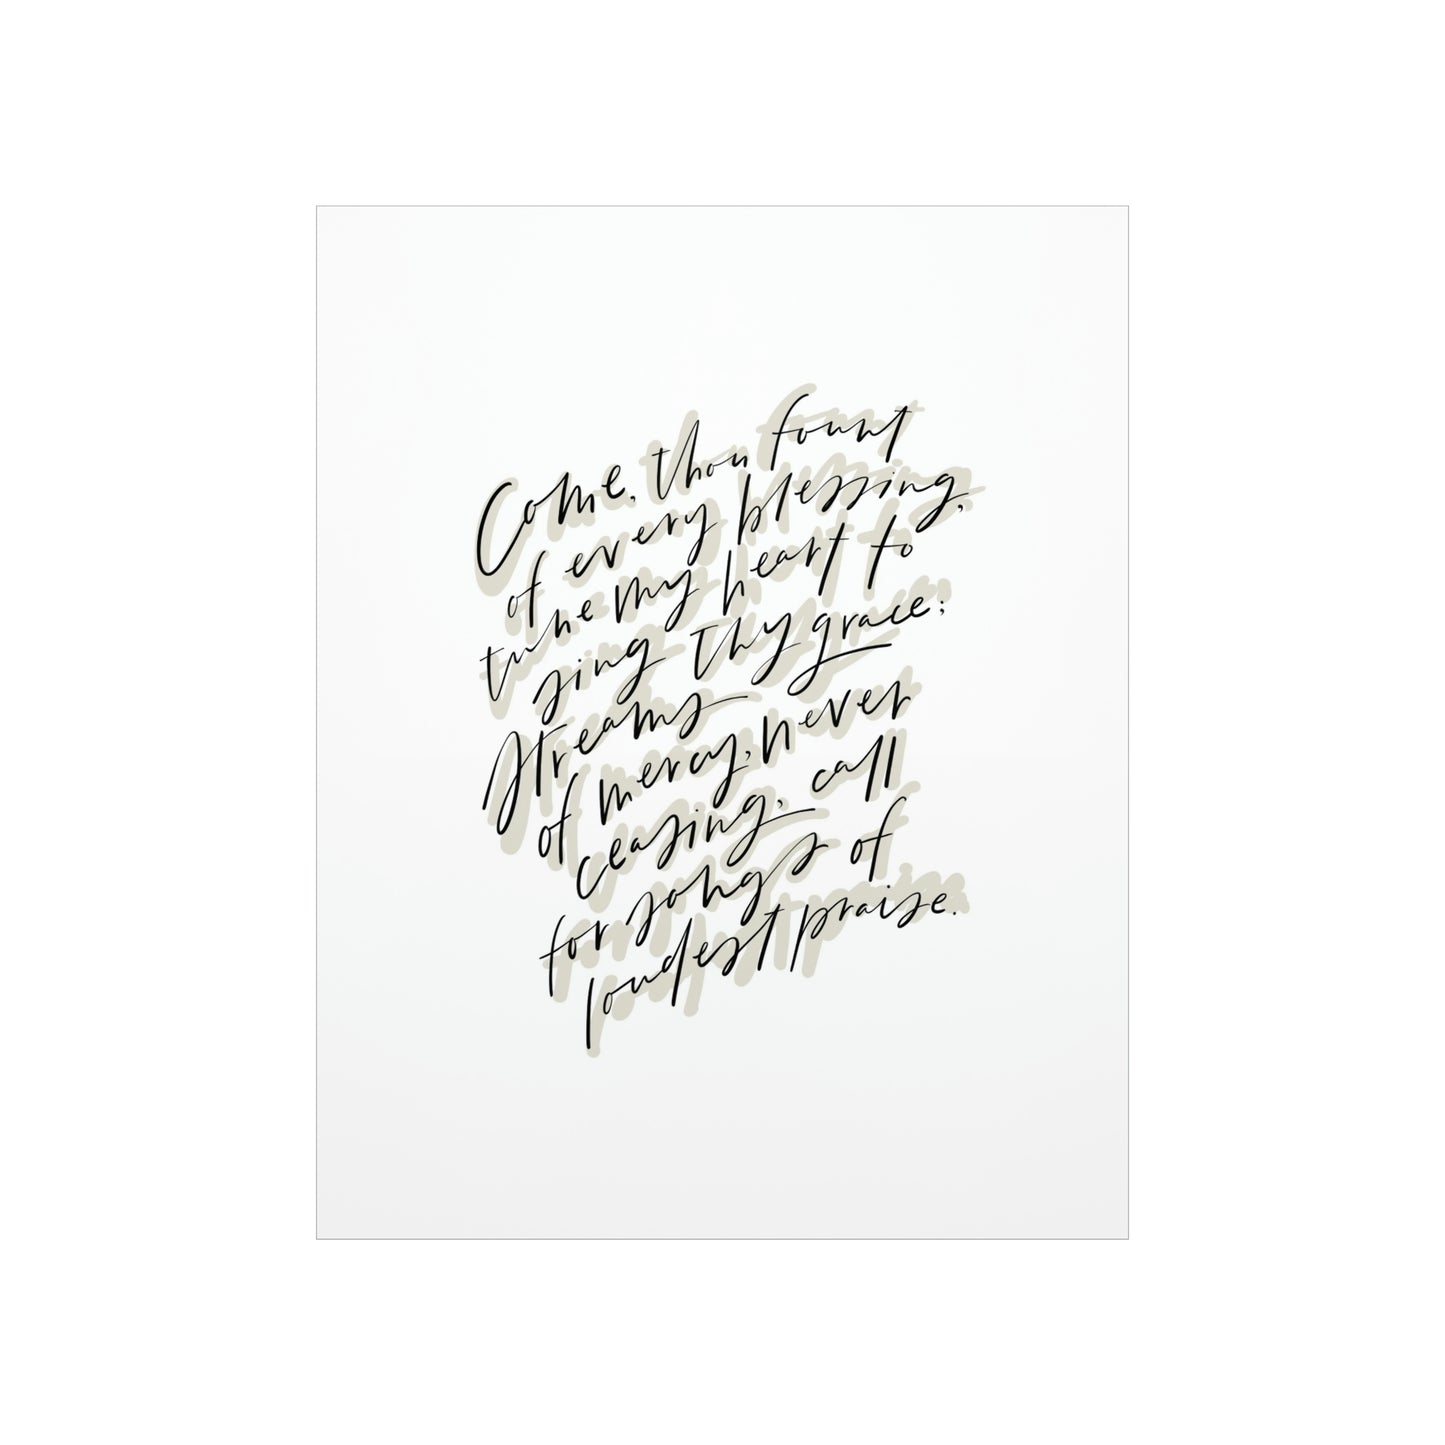 Come, thou fount
of every blessing,
tune my heart to
sing Thy grace;
Streams
of mercy, never
ceasing, call
for songs of
loudest praise.